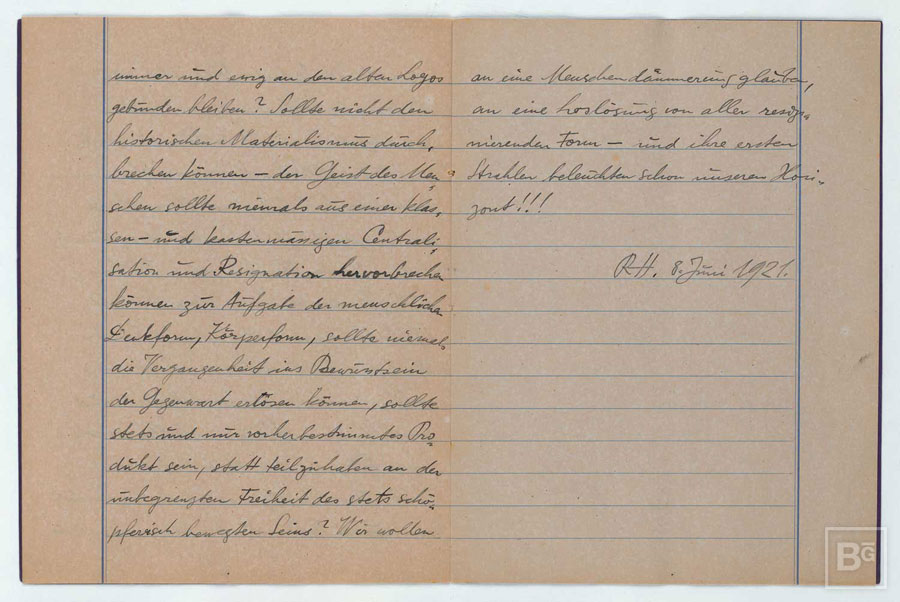 immer und ewig an den alten Logos
gebunden bleiben? Sollte nicht den
historischen Materialismus durch-
brechen können – der Geist des Men-
schen sollte niemals aus einer klas-
sen- und kastenmässigen Centrali-
sation und Resignation hervorbrechen
können zur Aufgabe der menschlichen
Denkform, Körperform, sollte niemals
die Vergangenheit ins Bewusstsein
der Gegenwart erlösen können, sollte
stets und nur vorherbestimmtes Pro-
dukt sein, statt teilzuhaben an der
unbegrenzten Freiheit des stets schö-
pferisch bewegten Seins? Wir wollen
an eine Menschendämmerung glauben,
an eine Loslösung von aller resig-
nierenden Form – und ihre ersten
Strahlen beleuchten schon unseren Hori-
zont!!!
RH. 8. Juni 1921.
BG